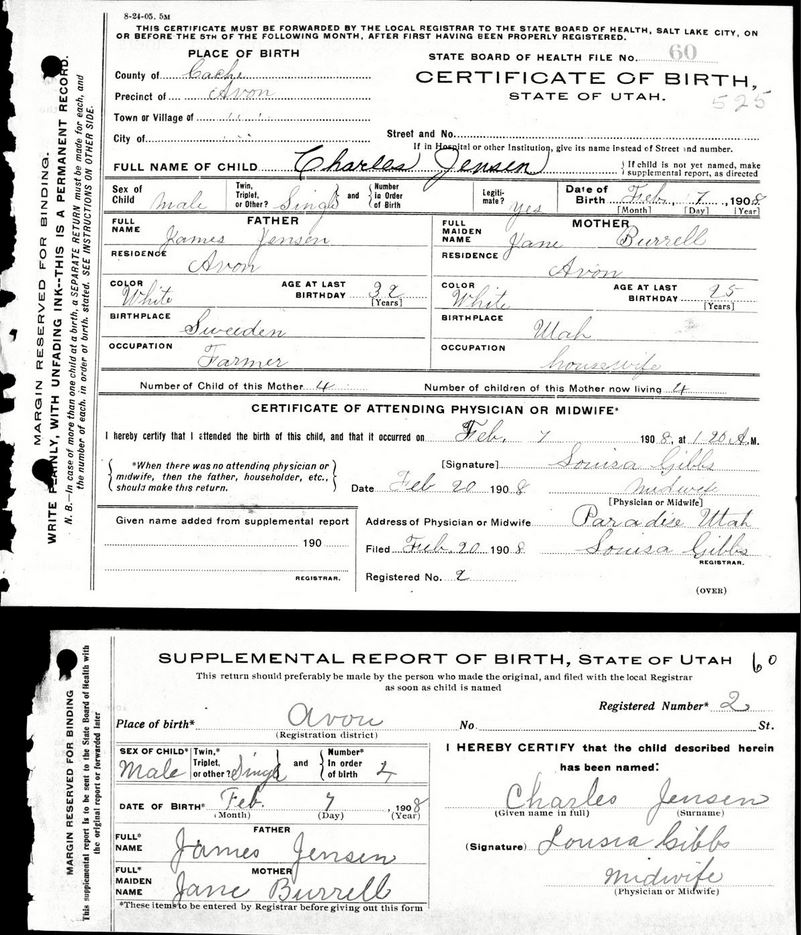 8-24-05. 5M
THIS CERTIFICATE MUST BE FORWARDED BY THE LOCAL REGISTRAR TO THE STATE BOARD OF HEALTH, SALT LAKE CITY, ON
OR BEFORE THE 5TH OF THE FOLLOWING MONTH, AFTER FIRST HAVING BEEN PROPERLY REGISTERED.
PLACE OF BIRTH
STATE BOARD OF HEALTH FILE No. 60
County of Cache
CERTIFICATE OF BIRTH,
Precinct of Avon
STATE OF UTAH.
525
Town or Village of
City of
Street and No.
If in Hospital or other Institution, give its name instead of Street and number.
FULL NAME OF CHILD Charles Jensen
If child is not yet named, make supplemental report, as directed
Sex of Child Male
Twin, Triplet, or Other? Singl and Number in Order of Birth
Legitimate? Yes
Date of Birth Feb. 7, 1908
[Month] [Day] [Year]
FATHER
FULL NAME James Jensen
RESIDENCE Avon
COLOR White
AGE AT LAST BIRTHDAY 32
[Years]
BIRTHPLACE Sweeden
OCCUPATION Farmer
MOTHER
FULL MAIDEN NAME Jane Burrell
RESIDENCE Avon
COLOR White
AGE AT LAST BIRTHDAY 25
[Years]
BIRTHPLACE Utah
OCCUPATION housewife
Number of Child of this Mother 4
Number of children of this Mother now living 4
CERTIFICATE OF ATTENDING PHYSICIAN OR MIDWIFE*
I hereby certify that I attended the birth of this child, and that it occurred on Feb. 7 1908, at 1 20 A. M.
*When there was no attending physician or
midwife, then the father, householder, etc.,
should make this return.
[Signature] Louisa Gibbs
Date Feb 20 1908 midwife
[Physician or Midwife]
Given name added from supplemental report
190
REGISTRAR.
Address of Physician or Midwife Paradise Utah
Filed Feb. 20 1908 Louisa Gibbs
REGISTRAR.
Registered No. 2
(OVER)
MARGIN RESERVED FOR BINDING.
WRITE PLAINLY, WITH UNFADING INK--THIS IS A PERMANENT RECORD.
N. B.—In case of more than one child at a birth, a SEPARATE RETURN must be made for each, and
the number of each, in order of birth, stated. SEE INSTRUCTIONS ON OTHER SIDE.
SUPPLEMENTAL REPORT OF BIRTH, STATE OF UTAH 60
This return should preferably be made by the person who made the original, and filed with the local Registrar
as soon as child is named
Registered Number* 2
Place of birth* Avon No. St.
(Registration district)
SEX OF CHILD* Male
Twin,* Triplet, or other? Singl and Number* In order of birth 4
DATE OF BIRTH* Feb. 7, 1908
(Month) (Day) (Year)
FATHER
FULL* NAME James Jensen
MOTHER
FULL* MAIDEN NAME Jane Burrell
*These items to be entered by Registrar before giving out this form
I HEREBY CERTIFY that the child described herein
has been named:
Charles Jensen
(Given name in full) (Surname)
(Signature) Lousia Gibbs
Midwife
(Physician or Midwife)
MARGIN RESERVED FOR BINDING
This supplemental report is to be sent to the State Board of Health with
the original report or forwarded later